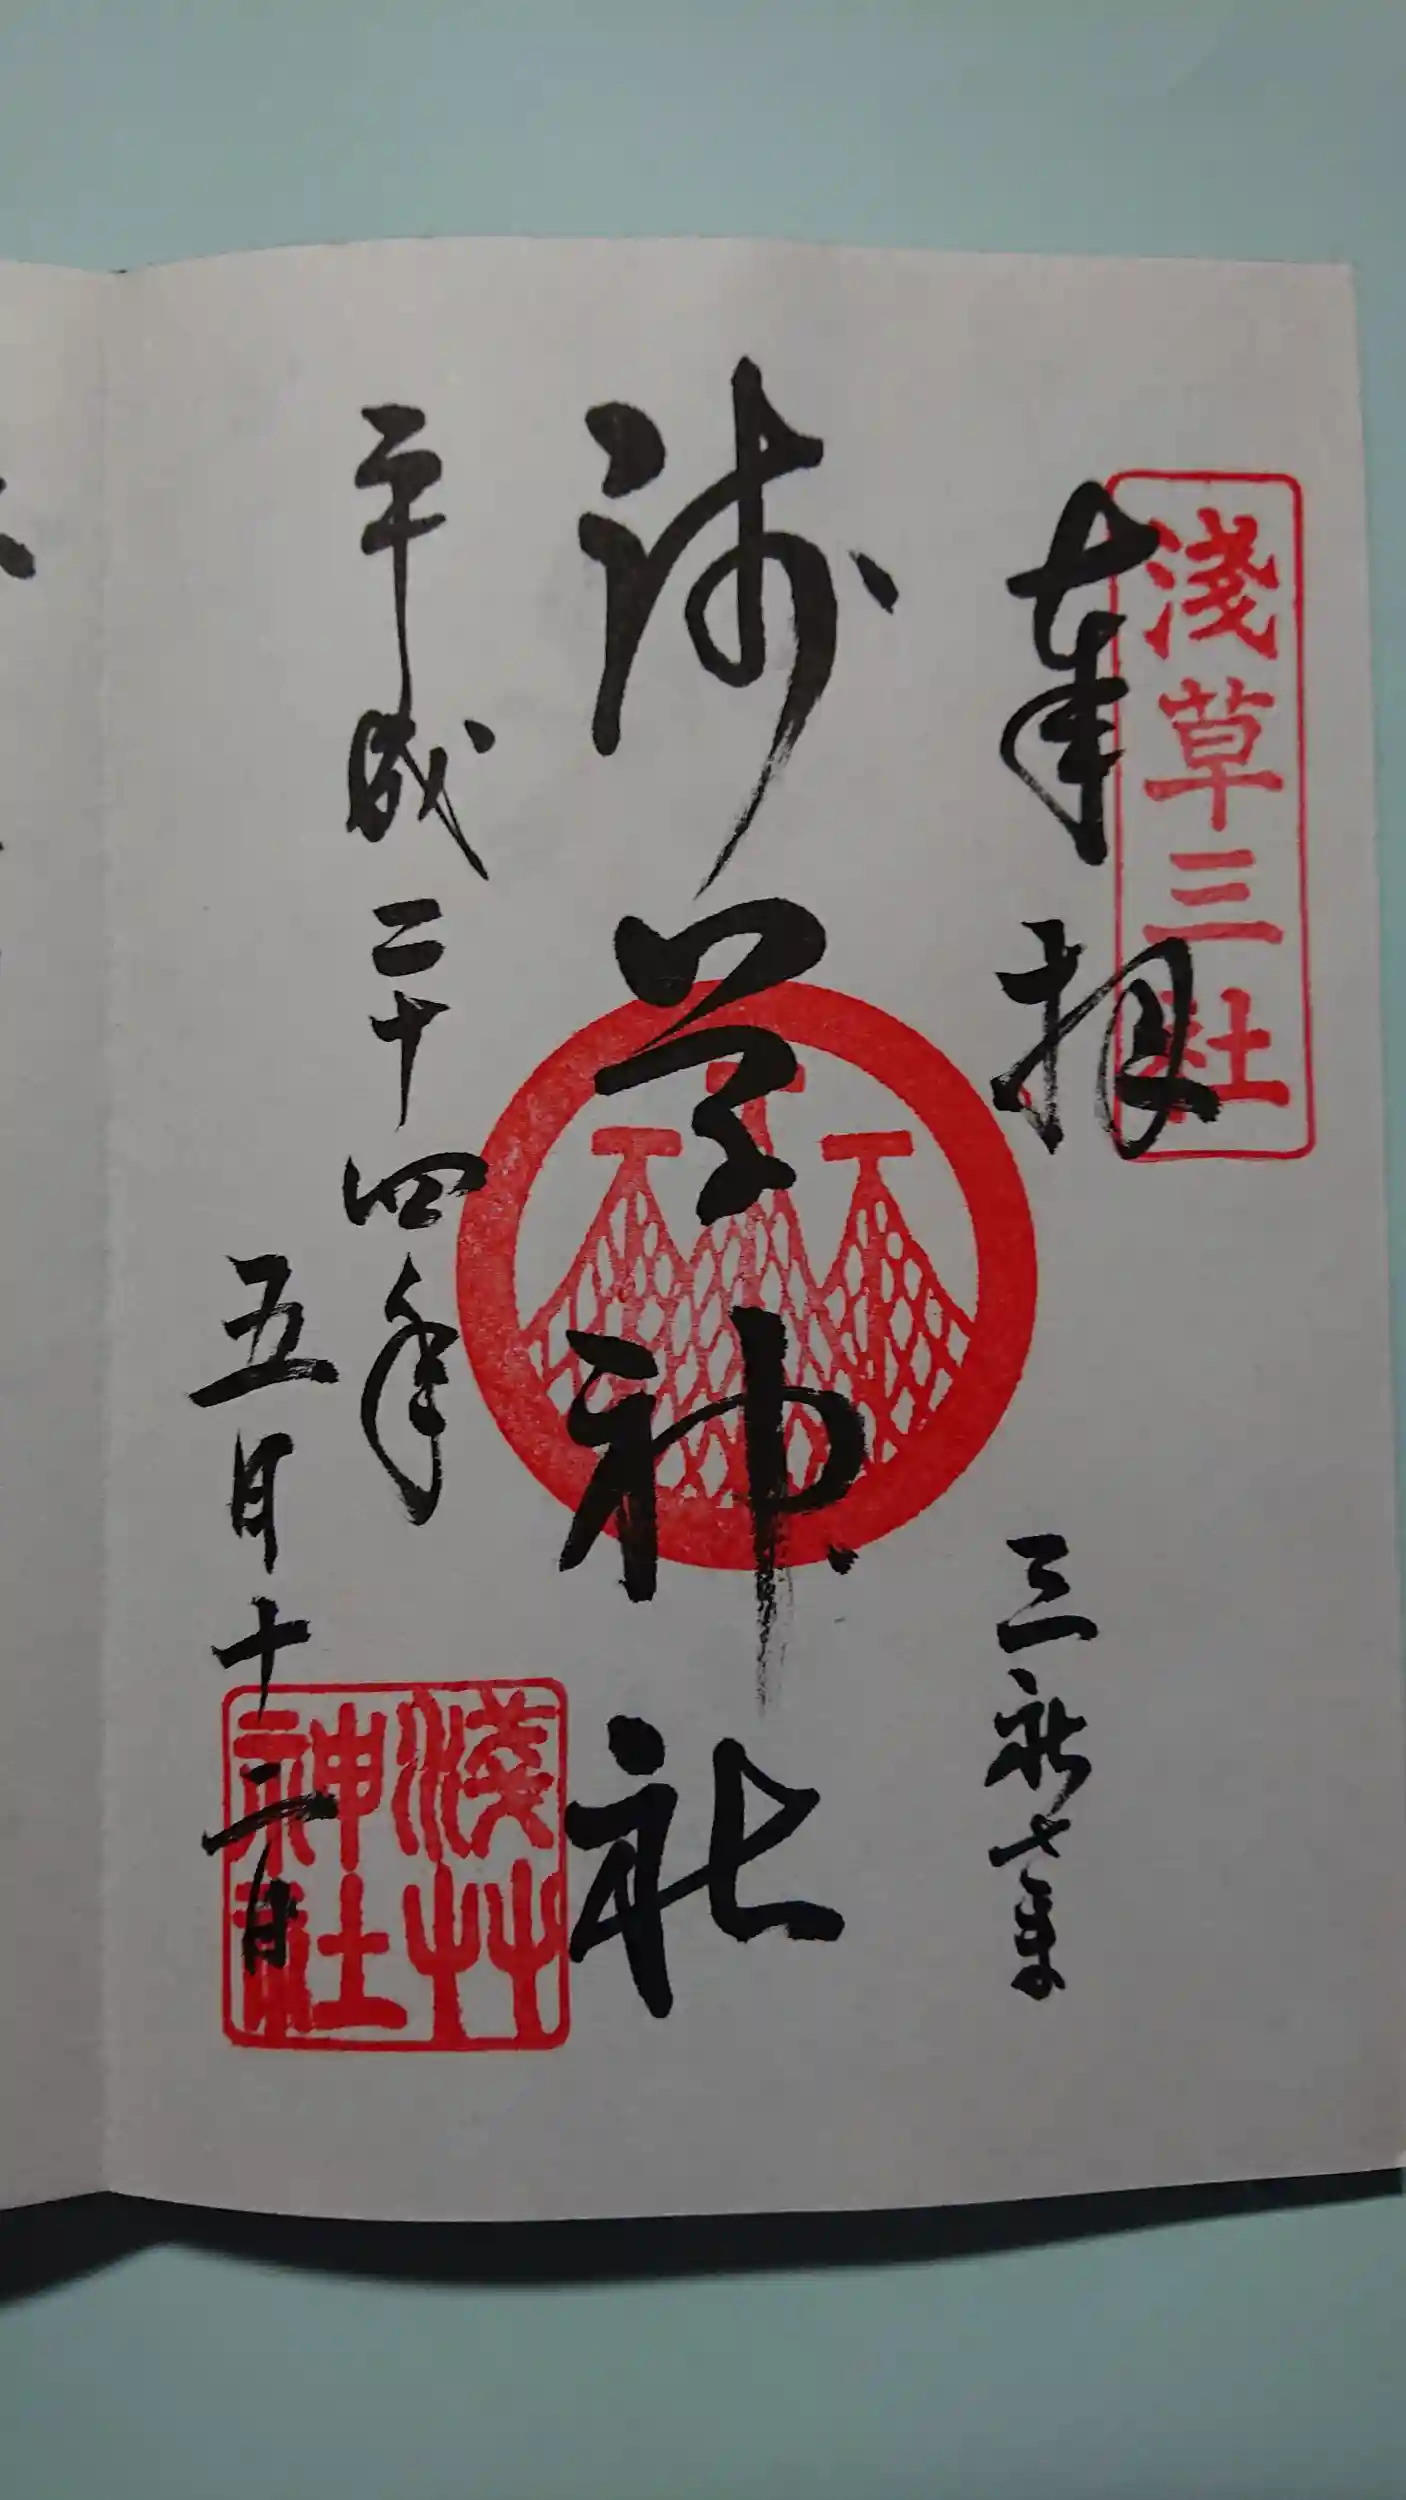 淺草三社
奉拝
三社七百年
浅草神社
平成二十四年
五月十二日
淺艸
神社